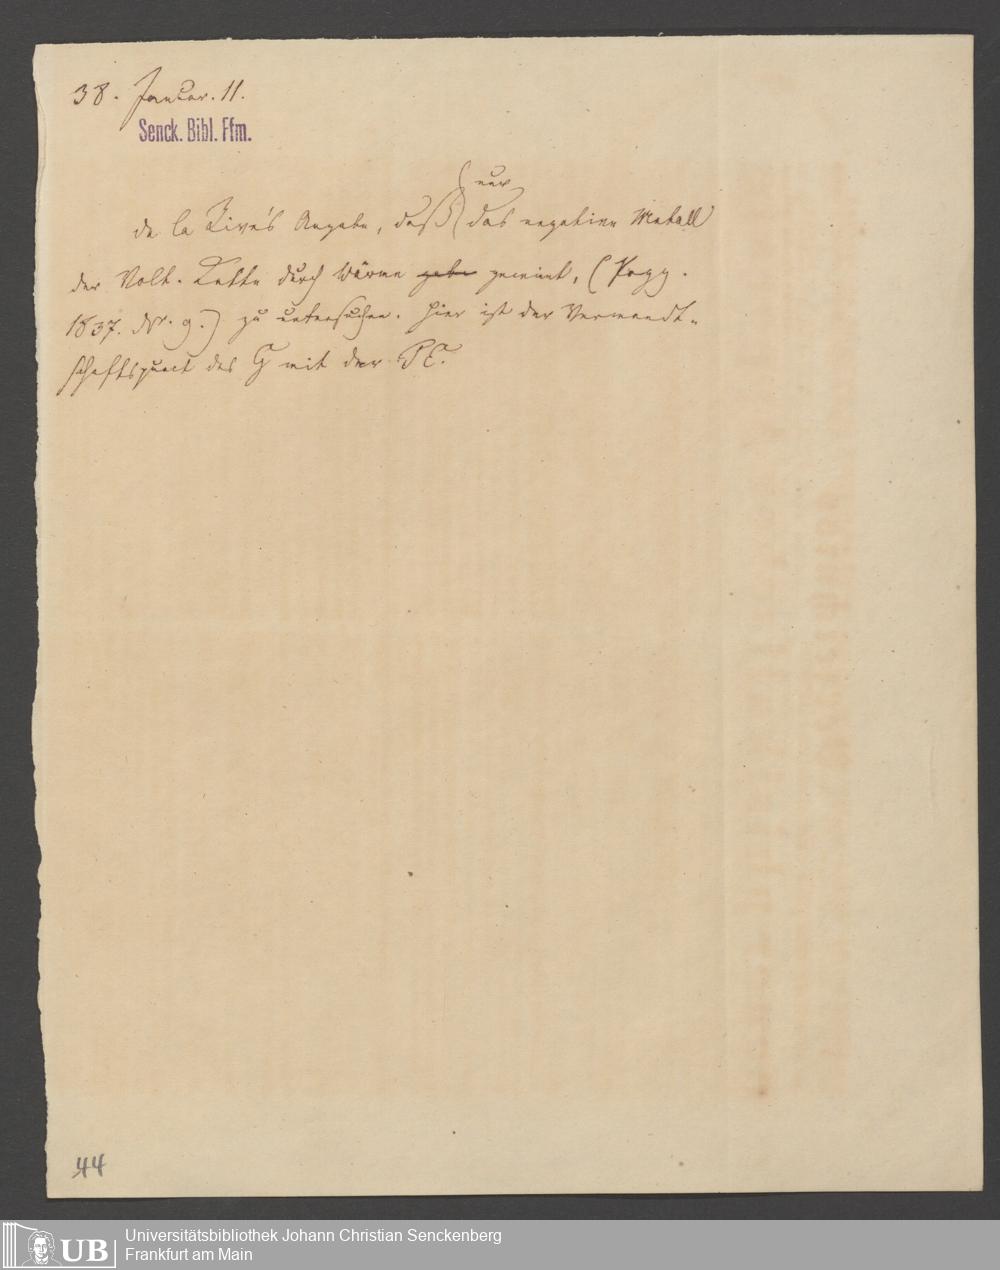 38. Januar. 11.
Senck. Bibl. Ffm.
nur
de la Rive's Angabe, daß das negative Metall
der Volt. Kette durch Wärme gewinnt, (Pogg.
1837. Nr. 9.) zu untersuchen. Hier ist der Verwandt-
schaftspunct des G mit der
44
UB
Universitätsbibliothek Johann Christian Senckenberg
Frankfurt am Main